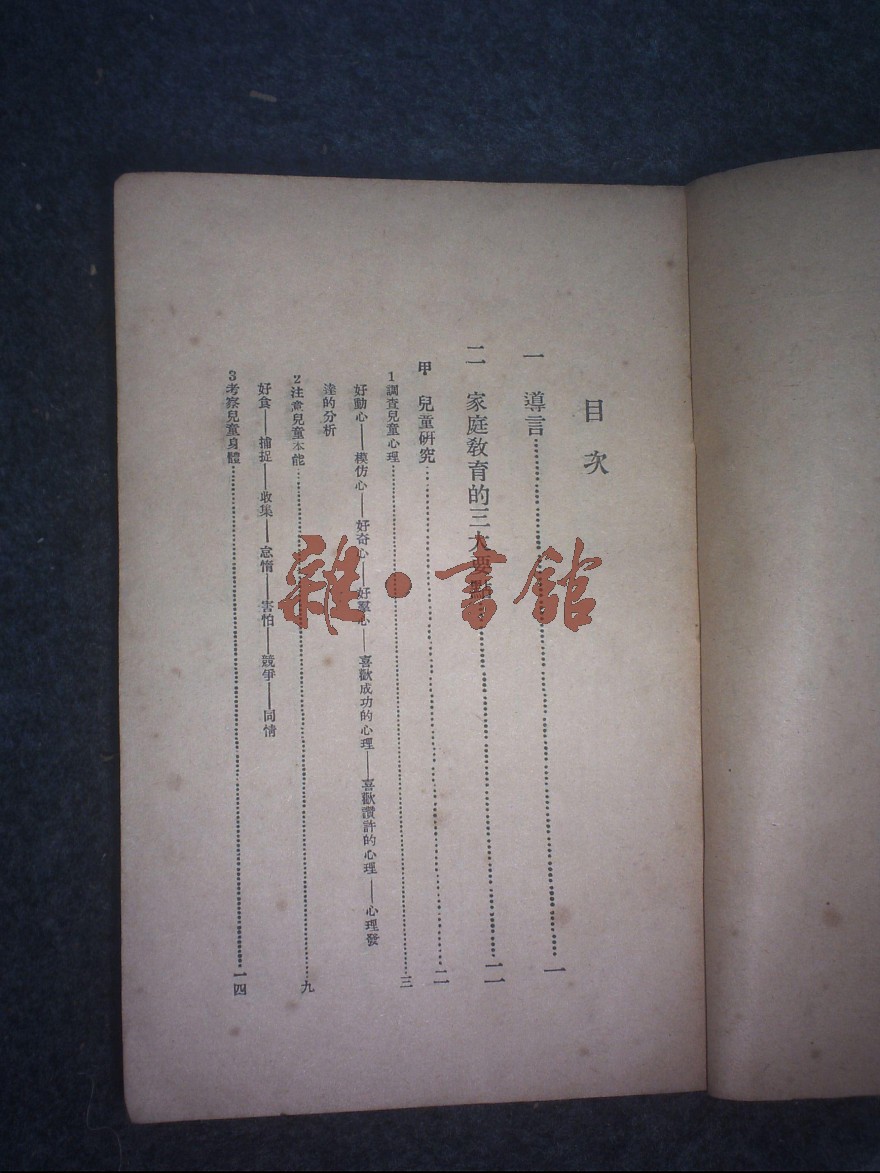 目次
一 導言……一
二 家庭教育的三大要點……二
甲 兒童研究……二
1調查兒童心理……三
好動心——模仿心——好奇心——好羣心——喜歡成功的心理——喜歡讚許的心理——心理發
達的分析
2注意兒童本能……九
好食——捕捉——收集——怠惰——害怕——競爭——同情
3考察兒童身體……一四
雜·書館